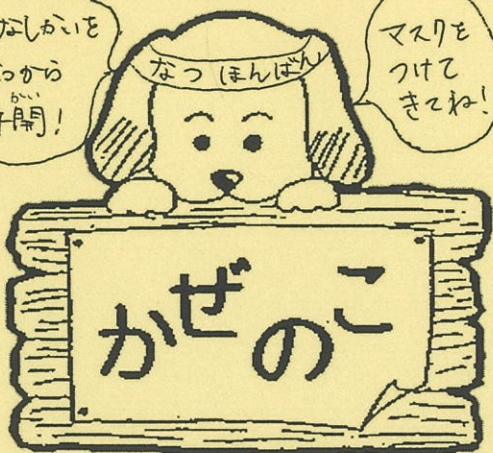 なしかいを
から
開!
かい
なつ ほんばん
マスクを
つけて
きてね!
かぜのこ